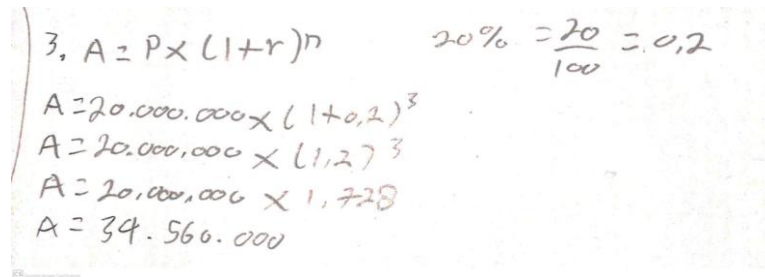 3. A = P x (1+r)n 20% = 20/100 = 0,2
A = 20.000.000 x (1+0,2)³
A = 20.000.000 x (1,2)³
A = 20.000.000 x 1,728
A = 34.560.000